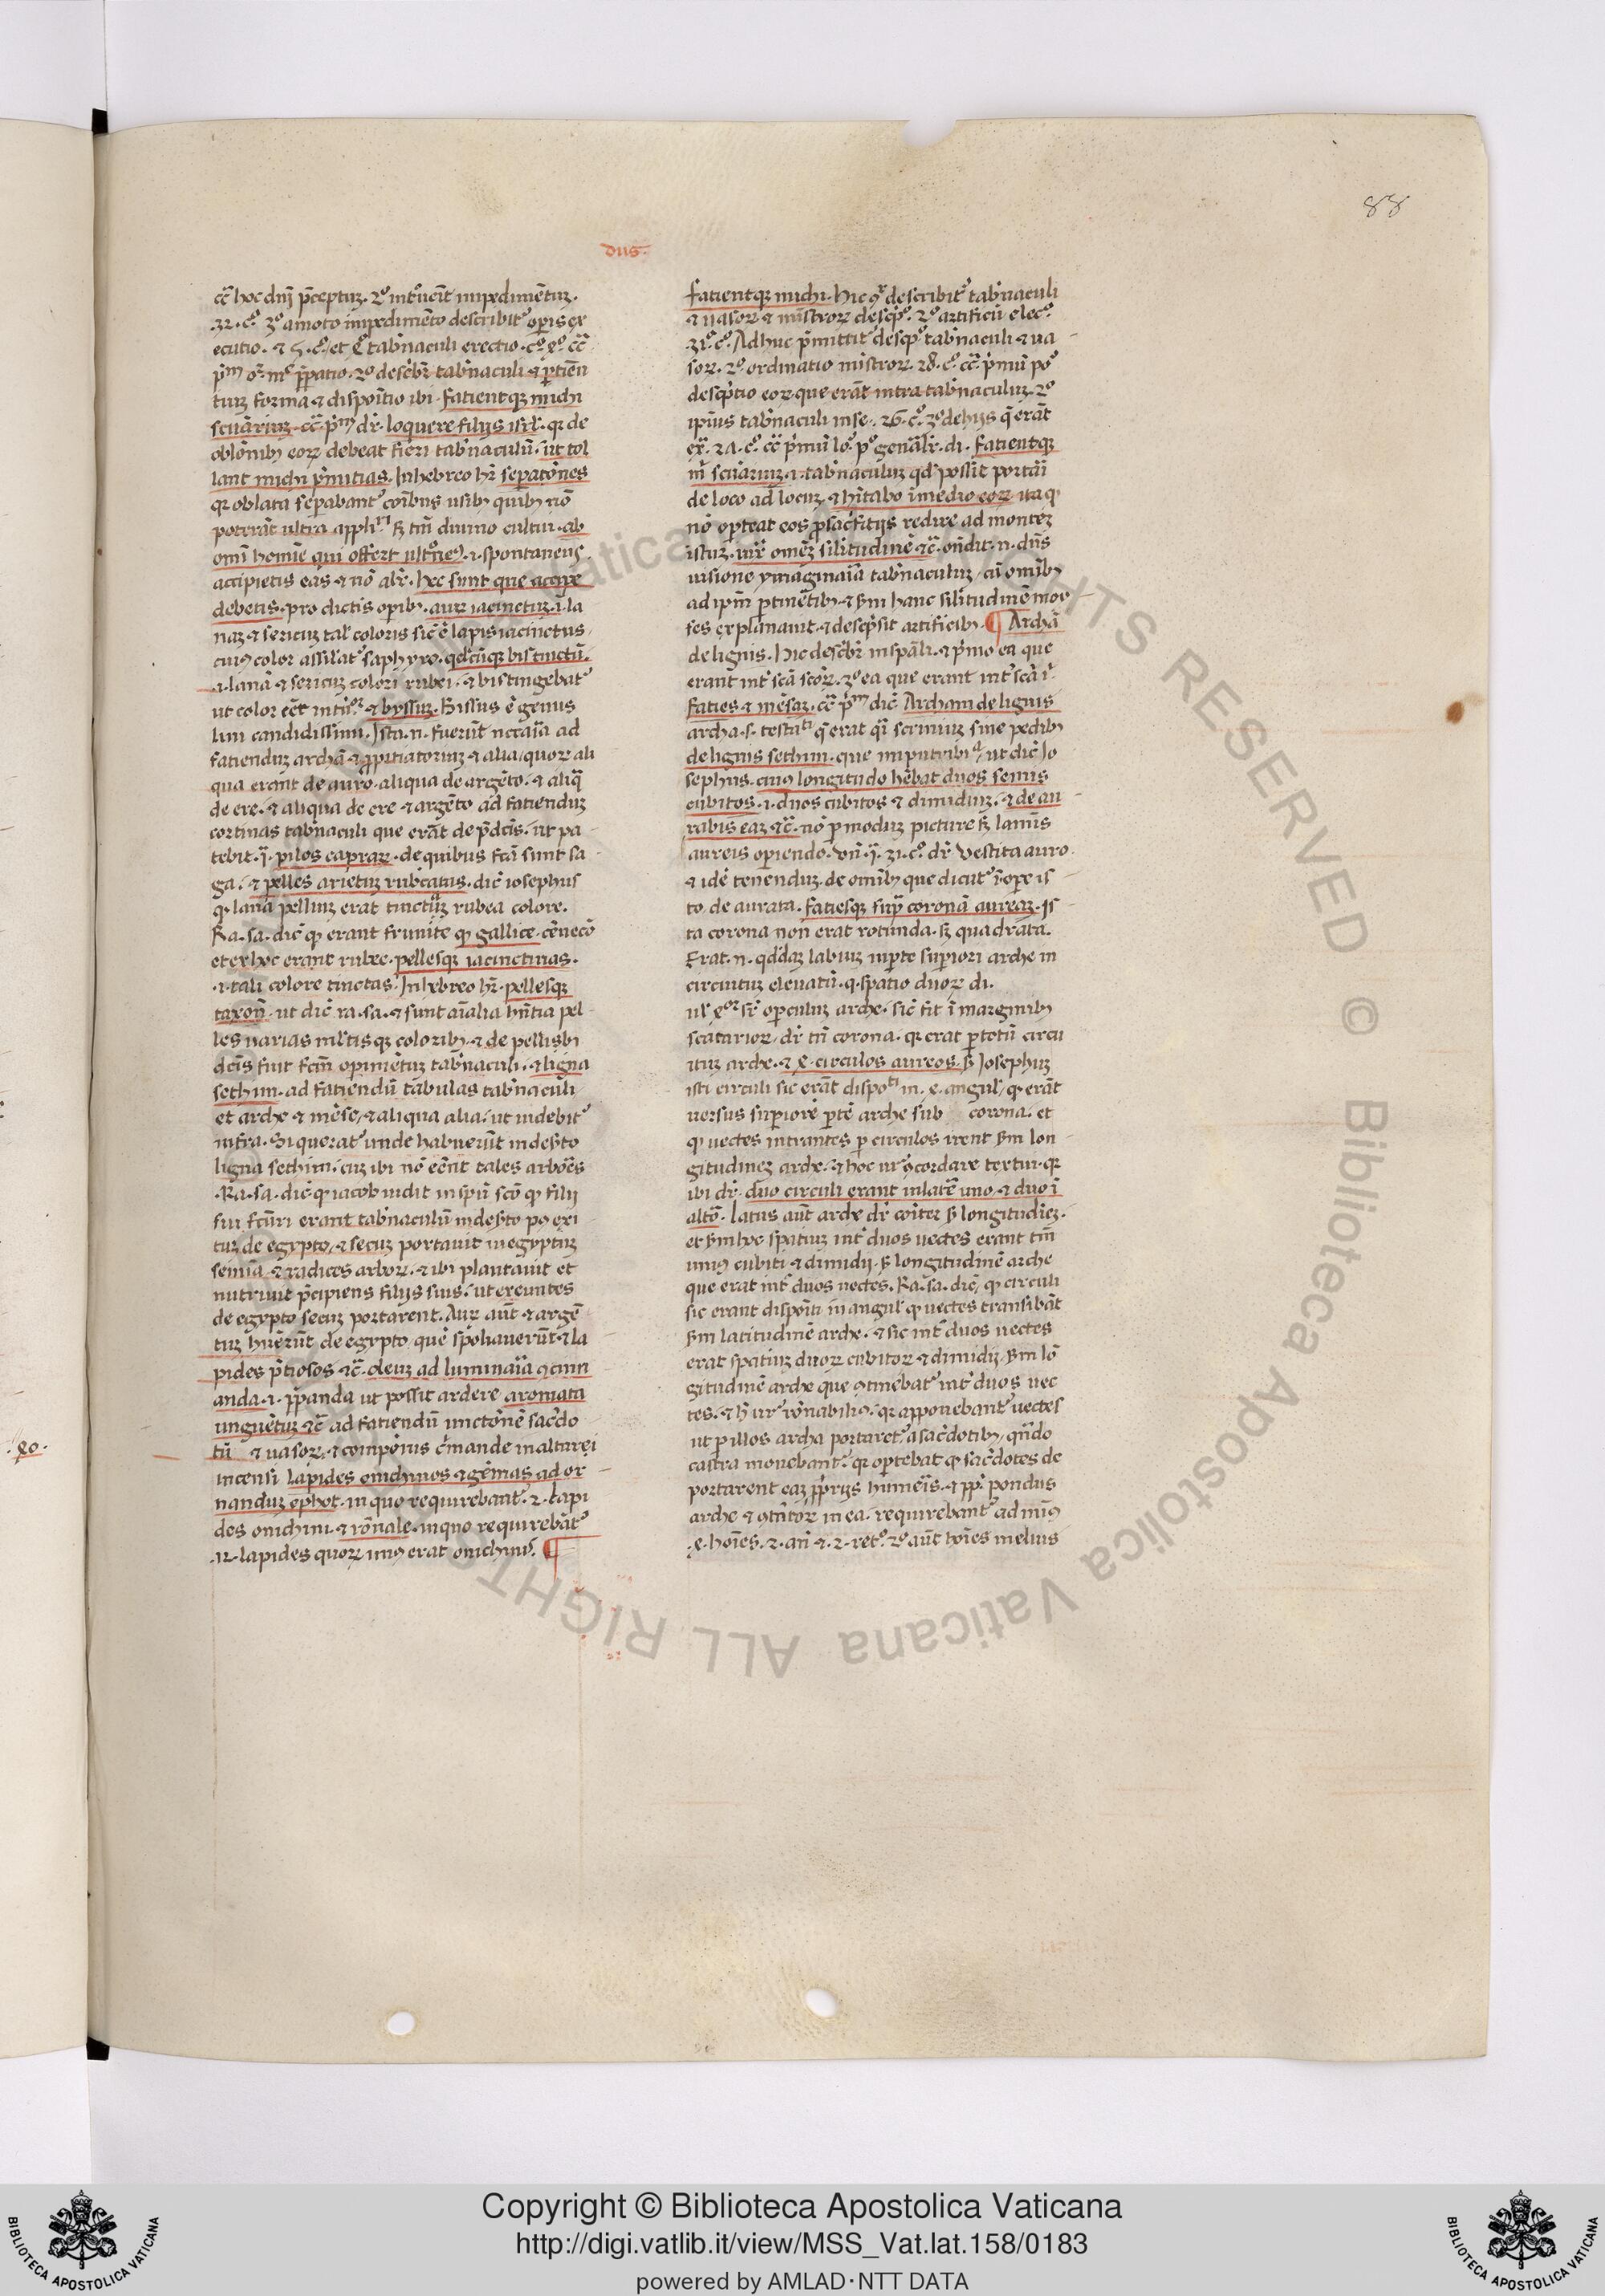 88
dus.
cc̄ hoc dn̄i p̄ceptuꝫ. 2º intͥuēit impedimētuꝫ.
.32. cº. 3º amoto impedimēto describitᷣ operis ex
ecutio. ⁊ 5. cº. et tab'naculi erectio. cº.
p̄patio. 2º describr̄ tab'naculi ⁊ p̱tinēn
tiuꝫ forma ⁊ dispoītio ibi. fatientqꝫ michi
scūariuꝫ. cc̄ pͥᵐ dr̄. loquere filijs isrl̄. qꝛ de
oblōnibꝫ eoꝝ debeat fieri tab'naculū. ut tol
lant michi pͥmitias. In hebreo hr̄ sep̱atōnes
qꝛ oblata sep̱abantᷣ cōibus usibꝫ quibꝫ nō
poterāt ultra appliᵗⁱ sꝫ tm̄ diuino cultui. ab
omī homīe qui offert ultºneꝰ .i. spontaneus
accipietis eas ⁊ nō alr̄. hec sunt que accipe
debetis. pro dictis opibꝫ. auꝝ iacinctuꝫ .i. la
naꝫ ⁊ sericuꝫ tal' coloris sic ē lapis iacinctus
cuiꝰ color assil'atᷣ saphyro. qd'cūqꝫ bis tinctū.
.i. lanā ⁊ sericuꝫ colori rubei. ⁊ bis tingebatᷣ
ut color eēt intēͥor ⁊ byssuꝫ. Bissus ē genus
lini candidissimi. Ista .n. fuerūt nccaͥia ad
fatienduꝫ archā ⁊ p̱pitiatoriuꝫ ⁊ alia quoꝝ ali
qua erant de auro. aliqua de argēto. ⁊ aliq̄
de ere. ⁊ aliqua de ere ⁊ argēto ad fatienduꝫ
cortinas tab'naculi que erāt de p̄dcīs. ut pa
tebit .j. pilos capraꝝ. de quibus fcā sunt sa
ga. ⁊ pelles arietuꝫ rubcatas. dic̄ iosephus
qꝙ lana pelliuꝫ erat tincta rubea colore.
Ra. sa. dic̄ qꝙ erant frunite qꝙ gallice
et ex hoc erant rubee. pellesqꝫ iacinctinas.
.i. tali colore tinctas. In hebreo hr̄. pellesqꝫ
taxon̄. ut dic̄ ra. sa. ⁊ sunt aīalia hn̄tia pel
les uarias ml'tisqꝫ coloribꝫ. ⁊ de pellisbꝫ
dcīs fuit fcm̄ opimētuꝫ tab'naculi. ⁊ ligna
sethim. ad fatiendū tabulas tab'naculi
et arche ⁊ mēse. ⁊ aliqua alia. ut uidebitᷣ
infra. Si queratᷣ unde habuerūt in des'to
ligna sethim. cuꝫ ibi nō eēnt tales arbōes
.Ra. sa. dic̄ qꝙ iacob uidit in spū scō qꝙ filij
sui fcūri erant tab'naculū in des'to po exi
tuꝫ de egypto. ⁊ secuꝫ portauit in egyptuꝫ
semīa ⁊ radices arboꝝ. ⁊ ibi plantauit et
nutriuit p̄cipiens filijs suis. ut exeuntes
de egypto secuꝫ portarent. Auꝝ aūt ⁊ argē
tuꝫ hūerūt de egypto. quē spoliauerūt. ⁊ la
pides p̄tiosos ⁊c̄. oleuꝫ ad luminaͥia ꝯcinn
anda .i. p̄panda ut possit ardere aromata
unguētuꝫ ⁊c̄ ad fatiendū unctōnē sac'do
tū ⁊ uasoꝝ. ⁊ compōius cͥmande in altarei
.80.
incensi lapides onichinos ⁊ gēmas ad or
nanduꝫ ephot. in quo requirebantᷣ .2. lapi
des onichini. ⁊ rōnale. in quo requirebātᷣ
.12. lapides quoꝝ unꝰ erat onichinꝰ. ¶
fatientqꝫ michi. Hic ꝯᷣ describitᷣ tab'naculi
⁊ uasoꝝ ⁊ mīstroꝝ desc̄pº. 2º artificū elecº.
31º. cº. Adhuc p̄mittitᷣ descp̄ tab'naculi ⁊ ua
soꝝ. 2º ordinatio mīstroꝝ. 28. cº. cc̄ pͥmū pº
descp̄tio eoꝝ que erāt intra tab'naculuꝫ. 2º
ip̄ius tab'naculi in se. 26. cº. 3º de hijs q̄ erāt
ex̄. 27. cº. cc̄ pͥmū loº. pº genāl'r. di. fatientqꝫ
m̄ scūariuꝫ .i. tab'naculuꝫ qd' possit portaͥi
de loco ad locuꝫ. ⁊ hītabo ī medio eoꝝ ita qꝙ
nō op̱teat eos p̱ sac'fitijs redire ad monteꝫ
istuꝫ. iux̄ omēꝫ silitudinē ⁊c̄. on̄dit .n. dn̄s
uisione ymaginaͥia tab'naculuꝫ cū omībꝫ
ad ip̄m p̱tinētibꝫ ⁊ sm̄ hanc silitudinē moy
ses explanauit. ⁊ descp̄sit artificibꝫ. ¶ Archā
de lignis. Hic descbr̄ in spāli. ⁊ pͥmo ea que
erant intᷣ scā scōꝝ. 2º ea que erant intᷣ scā i.
faties ⁊ mēsaꝫ. cc̄ pͥᵐ dic̄ Archam de lignis
archa .s. testaᵗⁱ q̄ erat q̄i scriniuꝫ sine pedibꝫ
de lignis sethim. que imputribiᵃ. ut dic̄ Jo
sephus. cuiꝰ longitudo hēbat duos semis
cubitos .i. duos cubitos ⁊ dimidiuꝫ. ⁊ de au
rabis eaꝫ ⁊c̄. nō p̱ moduꝫ picture sꝫ lamīs
aureis op̱iendo. vn̄ .j. 31. cº. dr̄ vestita auro
⁊ idē tenenduꝫ de omībꝫ que dicūtᷣ ī op̱e is
to de aurata. fatiesqꝫ supᷓ coronā aureaꝫ. Is
ta corona non erat rotunda. sꝫ quadrata.
Erat .n. qd'daꝫ labiuꝫ in p̱te sup̱iori arche in
circuitu eleuatū. q. spatio duoꝝ di.
ul' sr̄ op̱culuꝫ arche. sic̄ fit ī marginibꝫ
scacarioꝝ. dr̄ tn̄ corona. qꝛ erat p̱ totū circu
ituꝫ arche. ⁊ circulos aureos. s̄ Josephuꝫ
isti circuli sic erāt dispoᵗⁱ in angul' qꝙ erāt
uersus sup̱iorē p̱tē arche sub corona. et
qꝙ uectes intrantes p̱ circulos irent sm̄ lon
gitudineꝫ arche. ⁊ hoc ur̄ ꝯcordare textui. qꝛ
ibi dr̄. duo circuli erant in latē uno. ⁊ duo ī
altō. latus aūt arche dr̄ cōitᷣ s̄ longitudīeꝫ.
et sm̄ hoc spatiuꝫ intᷣ duos uectes erant tm̄
uniꝰ cubiti ⁊ dimidij. s̄ longitudinē arche
que erat intᷣ duos uectes. Ra. sa. dic̄ qꝙ circuli
sic erant dispoīti in angul' qꝙ uectes transibāt
sm̄ latitudinē arche. ⁊ sic intᷣ duos uectes
erat spatiuꝫ duoꝝ cubitoꝝ ⁊ dimidij. sm̄ lō
gitudinē arche que ꝯtinebatᷣ intᷣ duos uec
tes. ⁊ h̄ ur̄ rōnabiliꝰ. qꝛ apponebantᷣ uectes
ut p̱ illos archa portaretᷣ a sac'dotibꝫ. qn̄do
castra mouebantᷣ. qꝛ op̱tebat qꝙ sac'dotes de
portarent eaꝫ p̱p̱rijs humēis. ⁊ pp̄ pondus
arche ⁊ ꝯtētoꝝ in ea. requirebantᷣ ad minꝰ
hoīes. 2. an̄ ⁊ .2. retº. 2º aūt hoīes melius
Copyright © Biblioteca Apostolica Vaticana
http://digi.vatlib.it/view/MSS_Vat.lat.158/0183
powered by AMLAD·NTT DATA
BIBLIOTECA APOSTOLICA VATICANA
BIBLIOTECA APOSTOLICA VATICANA
© Biblioteca Apostolica Vaticana ALL RIGHTS RESERVED